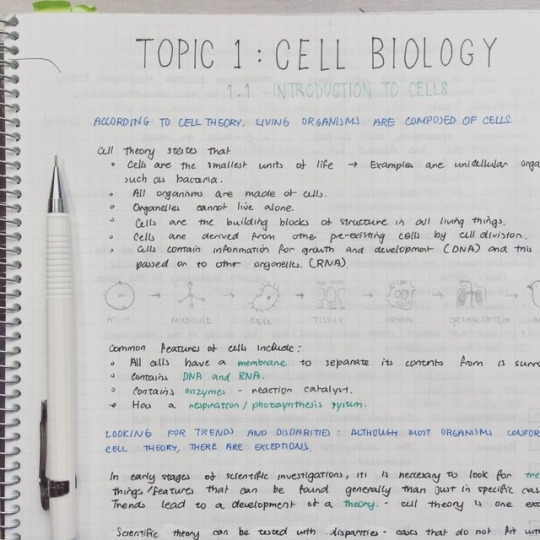 TOPIC 1: CELL BIOLOGY
1.1 INTRODUCTION TO CELLS
ACCORDING TO CELL THEORY, LIVING ORGANISMS ARE COMPOSED OF CELLS
Cell Theory states that
• Cells are the smallest units of life → Examples are unicellular
such as bacteria.
• All organisms are made of cells.
• Organelles cannot live alone.
• Cells are the building blocks of structure in all living things.
• Cells are derived from other pre-existing cells by cell division.
• Cells contain information for growth and development (DNA) and this
passed on to other organelles. (RNA)
ATOM MOLECULE CELL TISSUE ORGAN
Common features of cells include:
• All cells have a membrane to separate its contents from is
• Contains DNA and RNA.
• Contains enzymes - reaction catalyst.
• Has a respiration / photosynthesis system.
LOOKING FOR TRENDS AND DISPARITIES: ALTHOUGH MOST ORGANISMS
CELL THEORY, THERE ARE EXCEPTIONS.
In early stages of scientific investigations, it is necessary to look for
things/features that can be found generally than just in specific
Trends lead to a development of a theory. - cell theory is one
Scientific theory can be tested with disparities - cases that do not fit